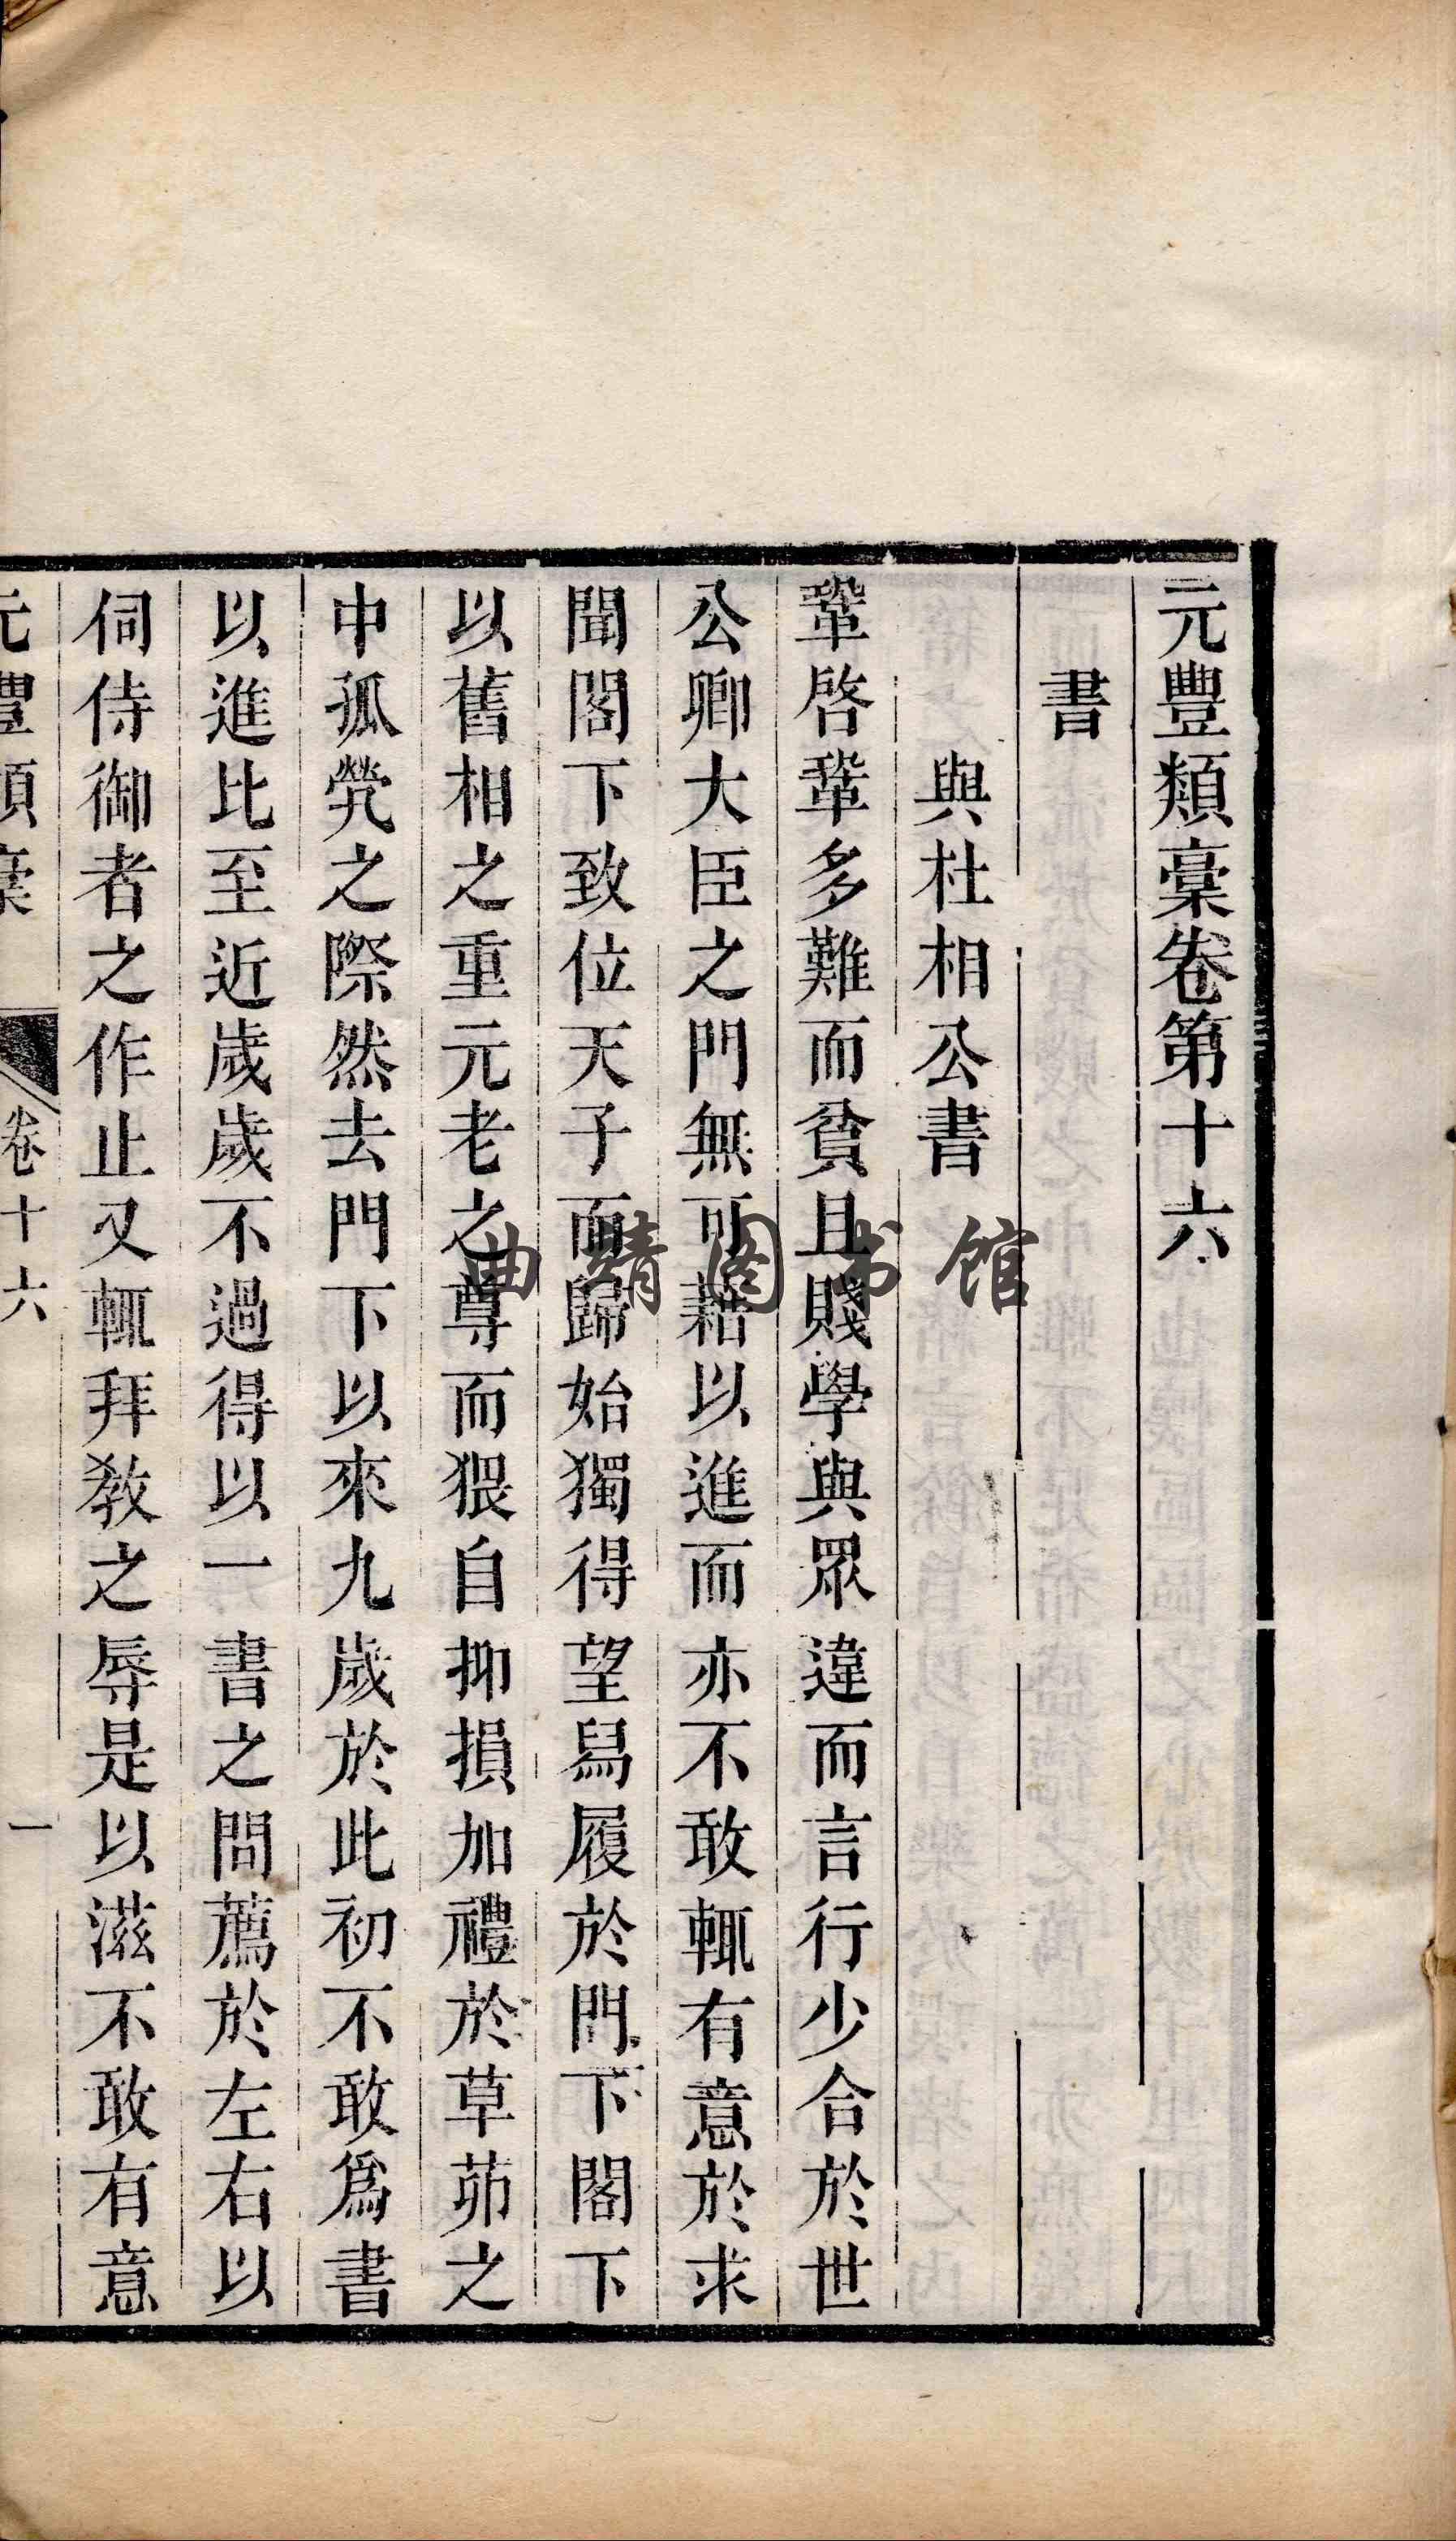 元豐類稾卷第十六
書
與杜相公書
鞏啓鞏多難而貧且賤學與眾違而言行少合於世
公卿大臣之門無可藉以進而亦不敢輒有意於求
聞閣下致位天子而歸始獨得望舄履於門下閣下
以舊相之重元老之尊而猥自抑損加禮於草茆之
中孤煢之際然去門下以來九歲於此初不敢爲書
以進比至近歲歲不過得以一書之問薦於左右以
伺侍御者之作止又輒拜教之辱是以滋不敢有意
元豐類稾 卷十六 一
曲靖图书馆